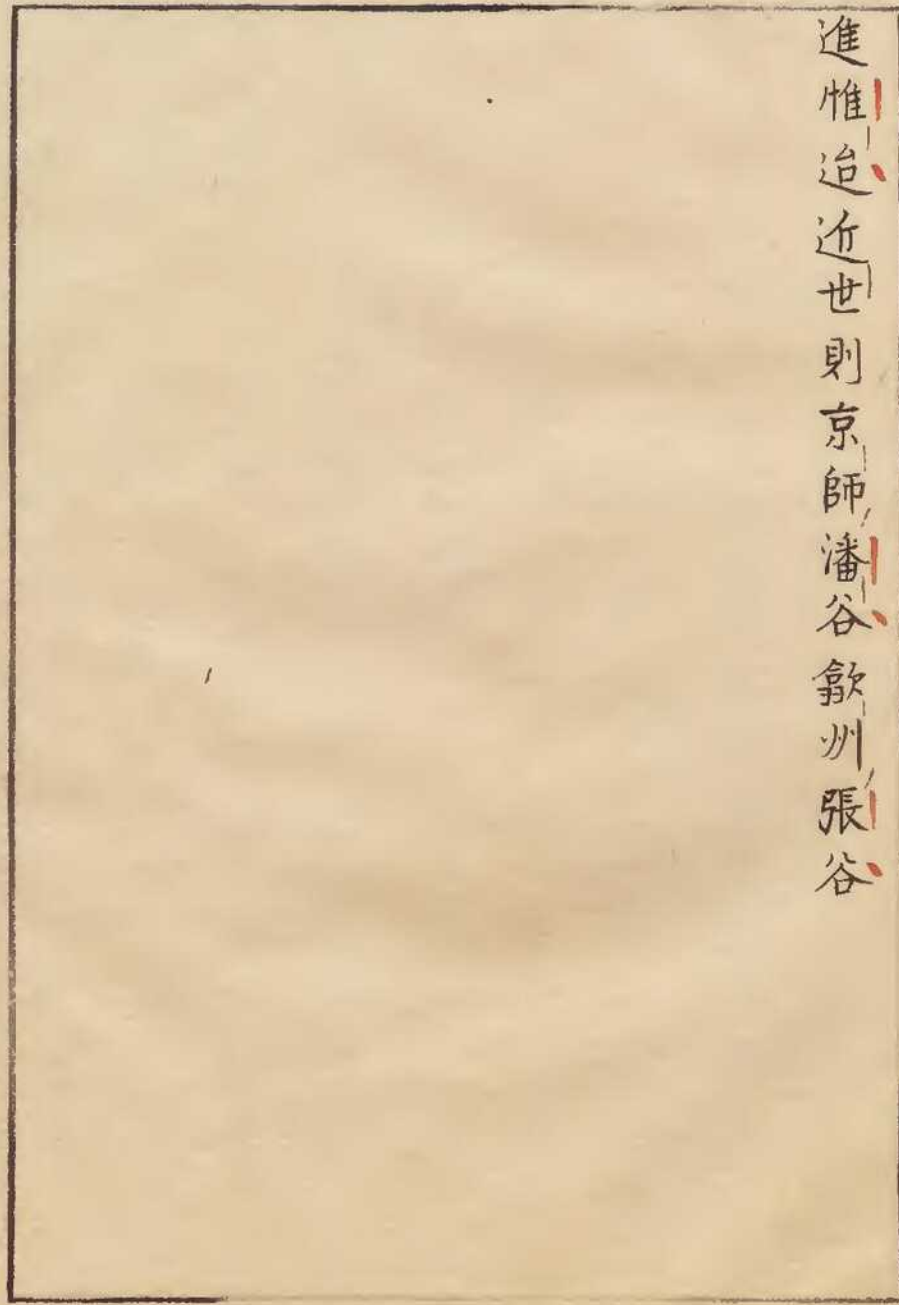 進惟迨近世則京師潘谷歙州張谷